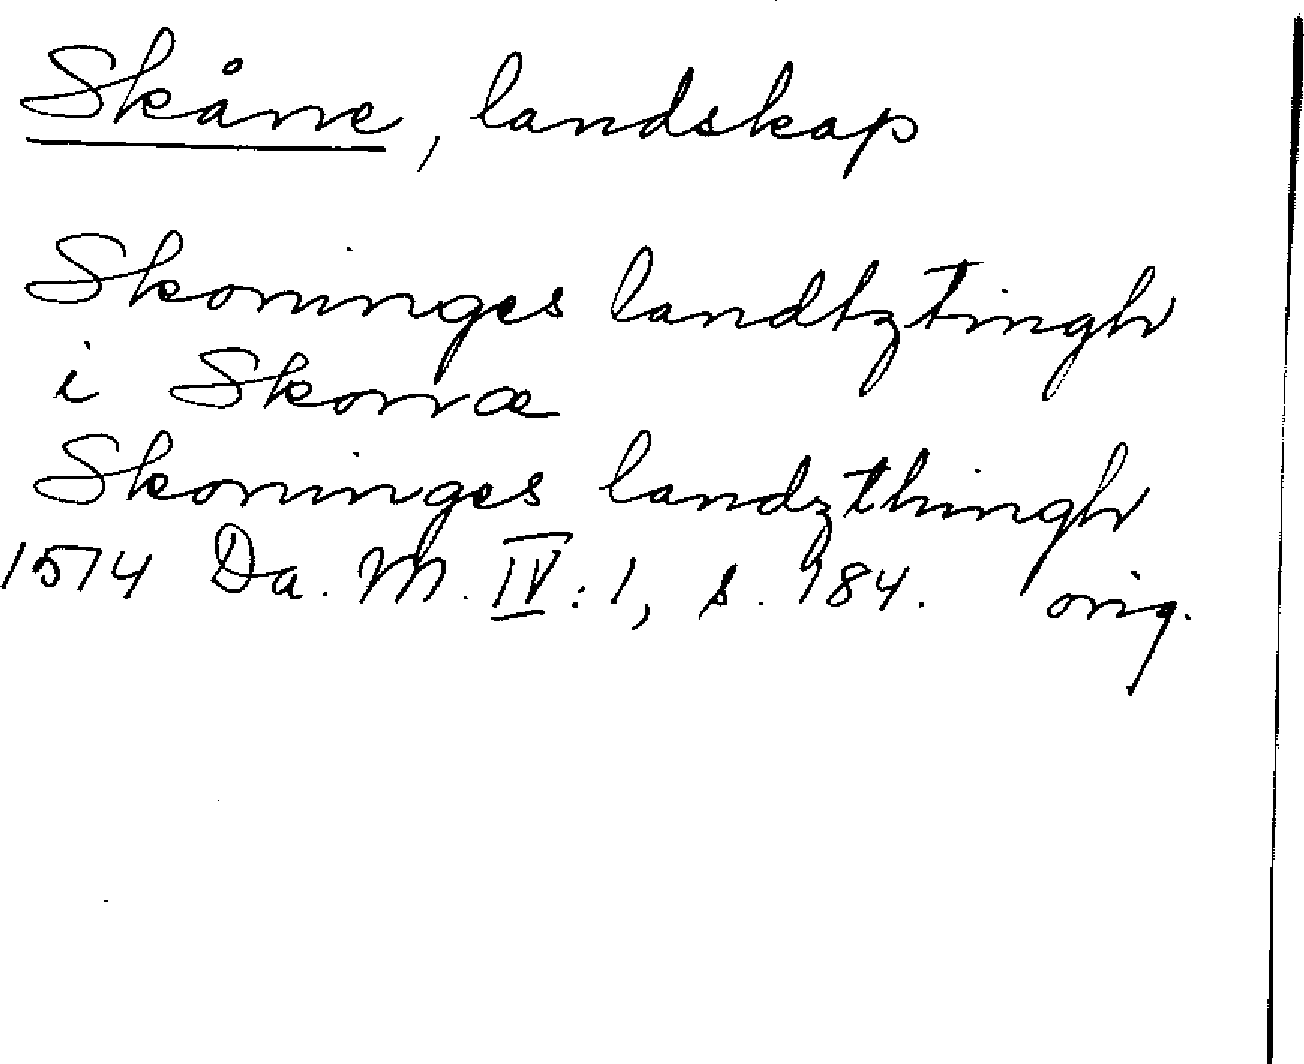 Skåne, landskap
Skoninges landtztingh
i Skonæ
Skoninges landzthingh
1574 Da. M. IV:1, s. 184. orig.